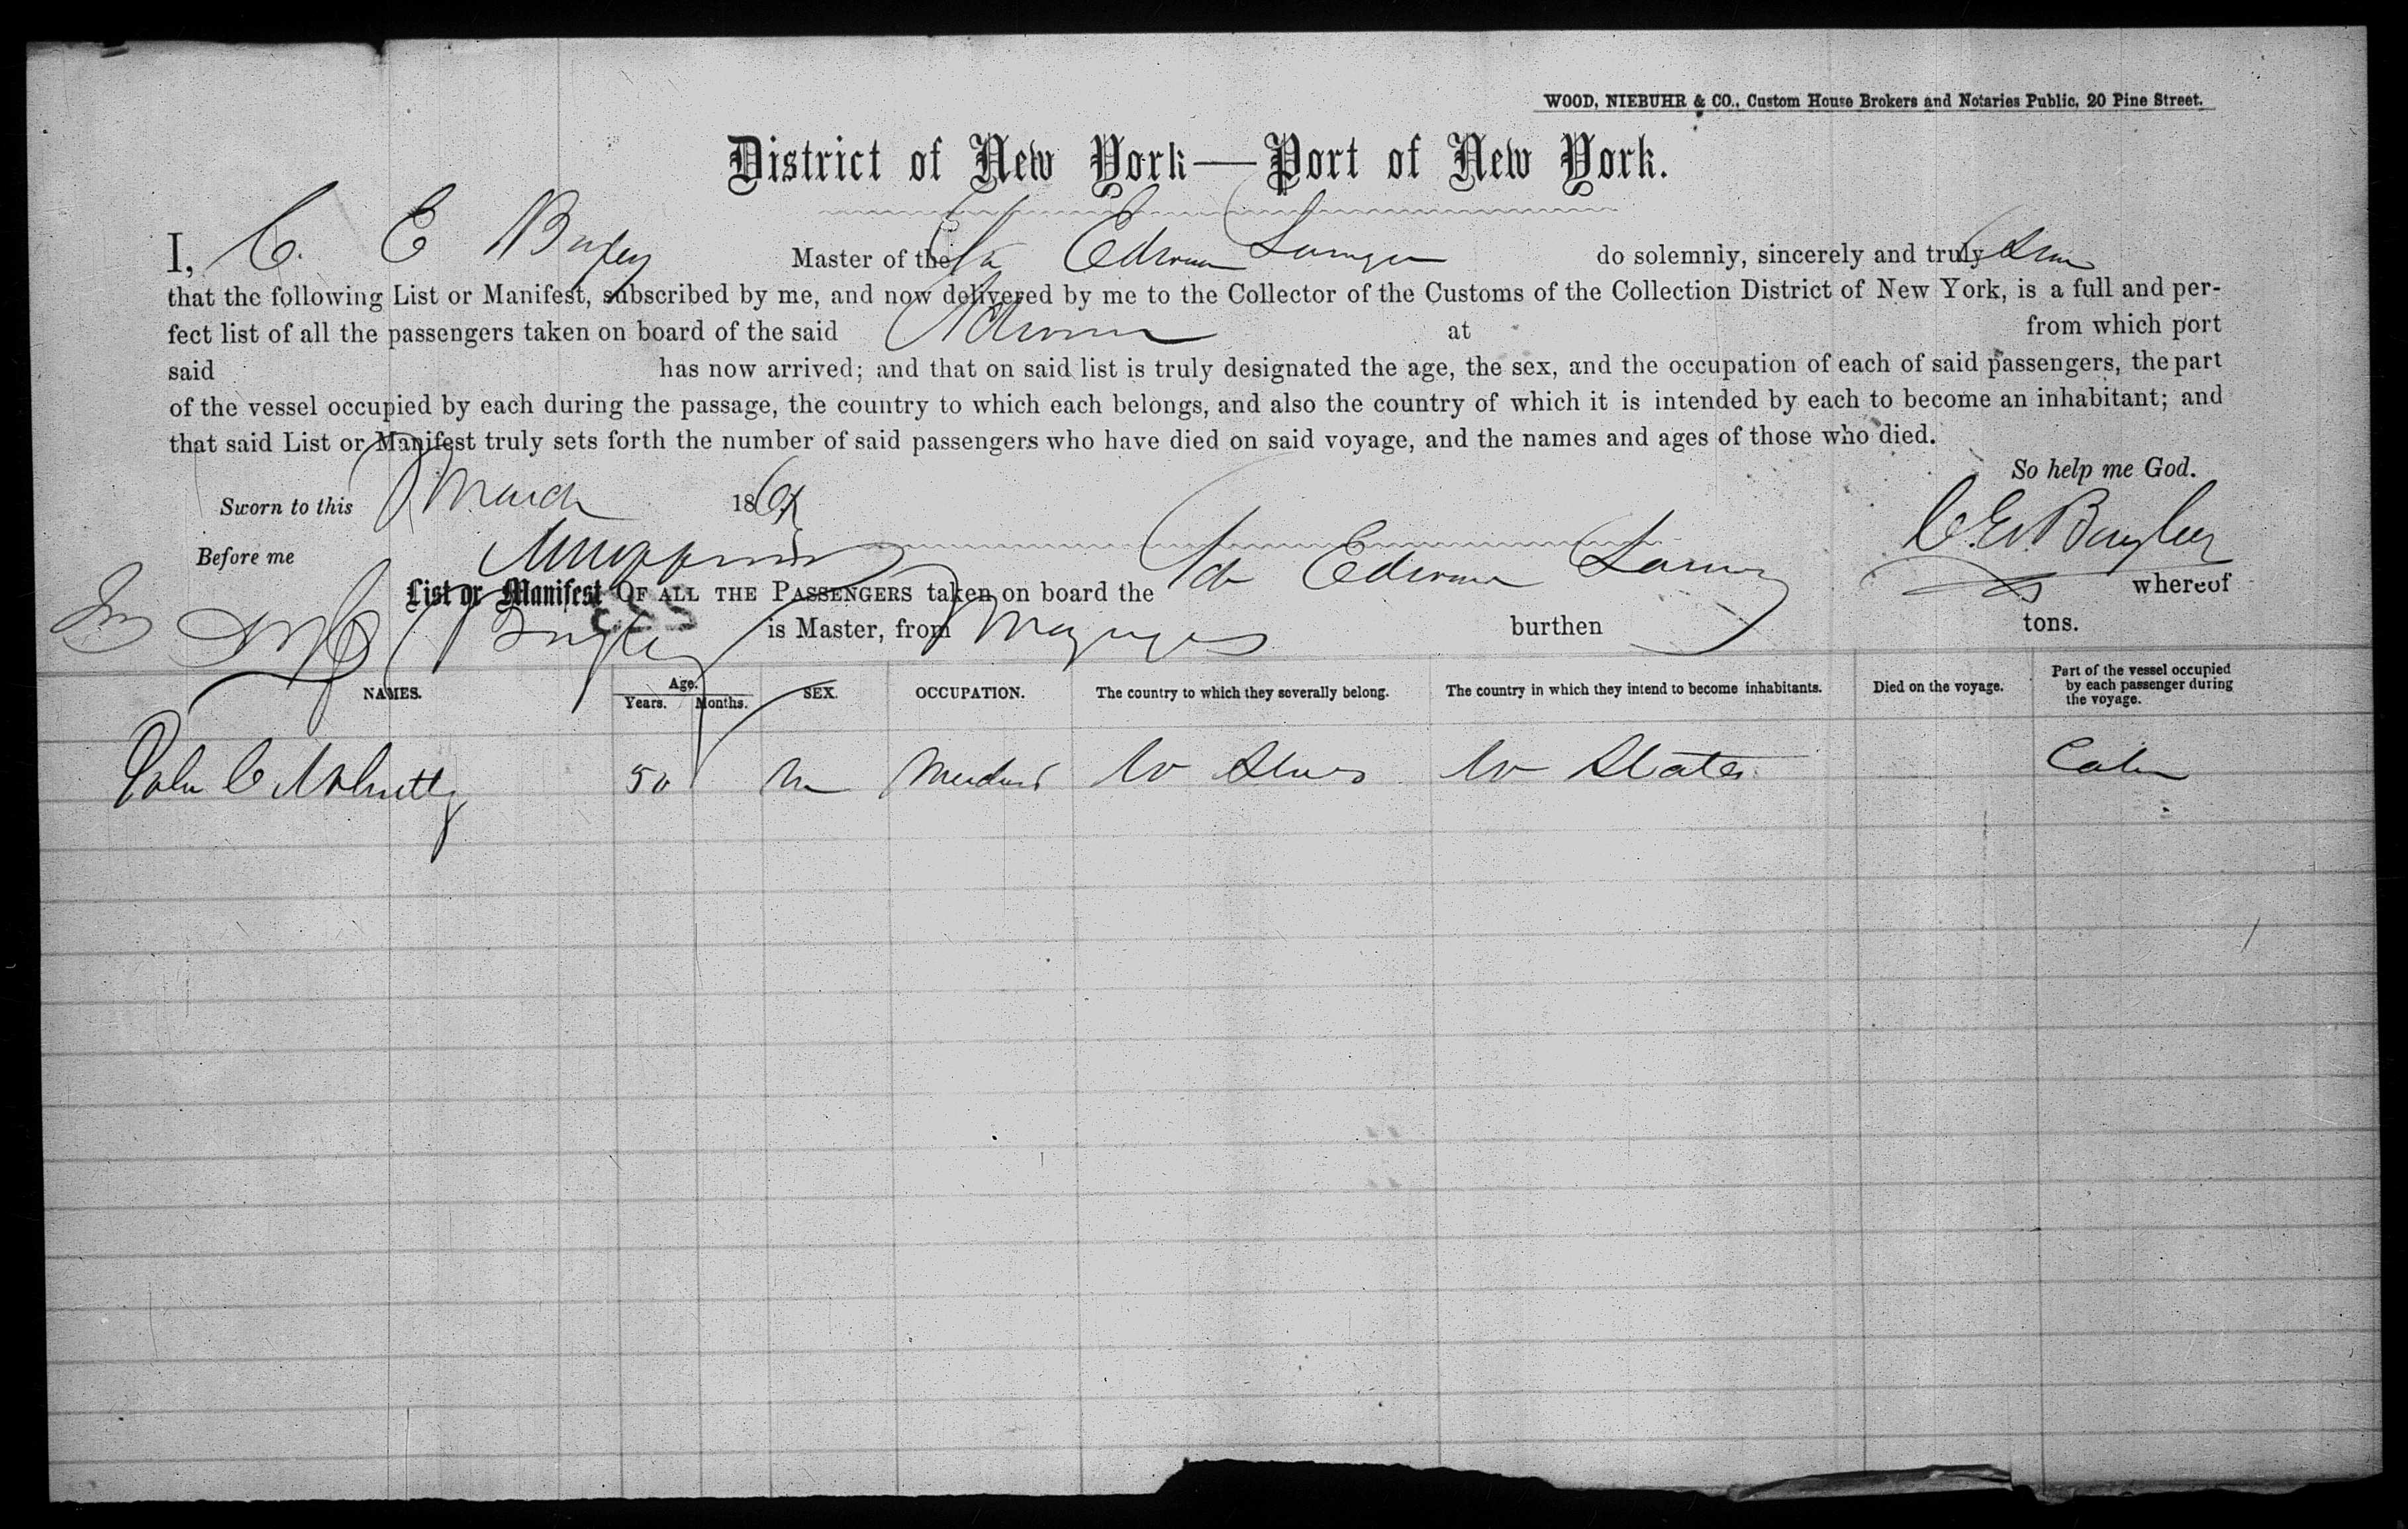 WOOD, NIEBUHR & CO., Custom House Brokers and Notaries Public, 20 Pine Street.
District of New York—Port of New York.
I, C. E Master of the do solemnly, sincerely and truly
that the following List or Manifest, subscribed by me, and now delivered by me to the Collector of the Customs of the Collection District of New York, is a full and per-
fect list of all the passengers taken on board of the said at from which port
said has now arrived; and that on said list is truly designated the age, the sex, and the occupation of each of said passengers, the part
of the vessel occupied by each during the passage, the country to which each belongs, and also the country of which it is intended by each to become an inhabitant; and
that said List or Manifest truly sets forth the number of said passengers who have died on said voyage, and the names and ages of those who died.
So help me God.
Sworn to this March 186
Before me
List or Manifest OF ALL THE PASSENGERS taken on board the whereof
is Master, from burthen tons.
NAMES. Age. Years. Months. SEX. OCCUPATION. The country to which they severally belong. The country in which they intend to become inhabitants. Died on the voyage. Part of the vessel occupied by each passenger during the voyage.
John C 50 m States